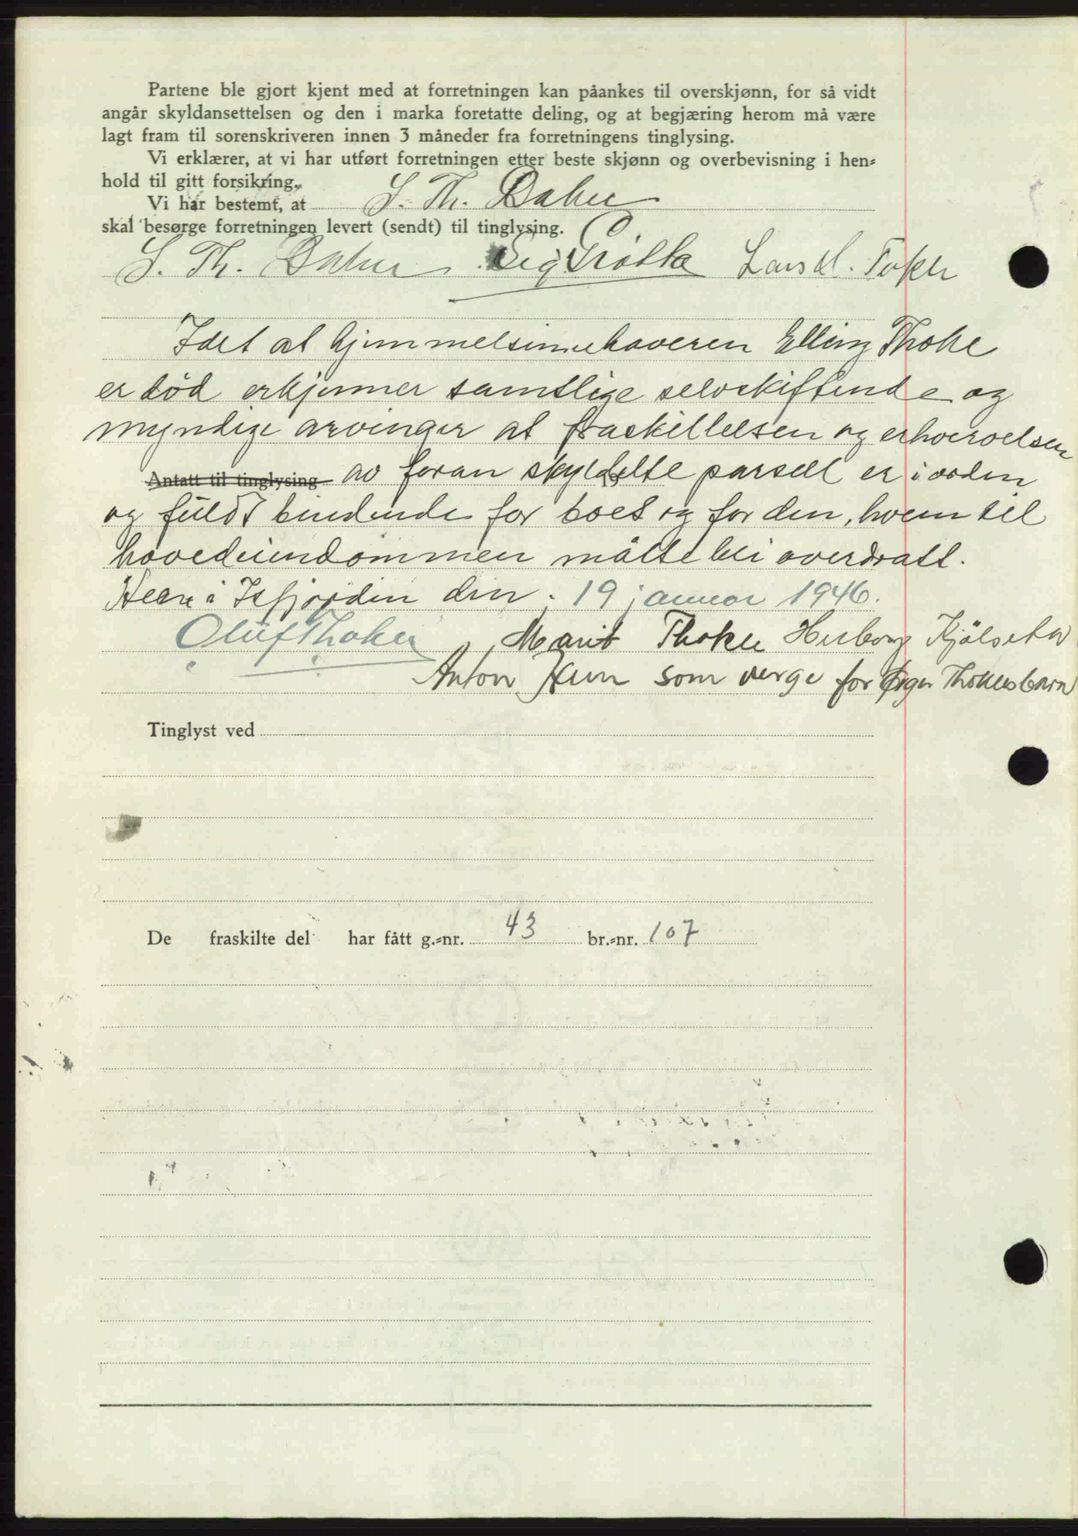 Partene ble gjort kjent med at forretningen kan påankes til overskjønn, for så vidt
angår skyldansettelsen og den i marka foretatte deling, og at begjæring herom må være
lagt fram til sorenskriveren innen 3 måneder fra forretningens tinglysing.
Vi erklærer, at vi har utført forretningen etter beste skjønn og overbevisning i hen-
hold til gitt forsikring.
Vi har bestemt, at S. Th. Dahle
skal besørge forretningen levert (sendt) til tinglysing.
S. Th. Sig Grötta Lars
Idet at hjemmelsinnehaveren Elling Thoke
er död erkjenner samtlige selvskiftende og
myndige arvinger at fraskillelsen og erhvervelsen
Antatt til tinglysing av foran skylddelte parsell er i orden
og fuldt bindende for boet og for den, hvem til
hovedeiendommen måtte bli overdratt.
Hen i Isfjorden den 19 januar 1946.
Oluf Thokle Marit Thokle Herborg
Anton Hen som verge for Thokles barn
Tinglyst ved
De fraskilte del har fått g.-nr. 43 br.-nr. 107